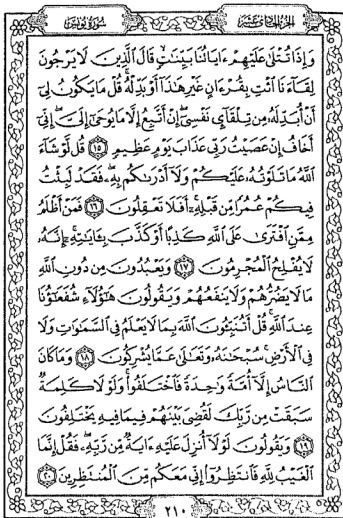 الجزء الحادي عشر
سورة يونس
وَإِذَا تُتْلَىٰ عَلَيْهِمْ ءَايَاتُنَا بَيِّنَٰتٍ قَالَ ٱلَّذِينَ لَا يَرْجُونَ
لِقَآءَنَا ٱئْتِ بِقُرْءَانٍ غَيْرِ هَٰذَآ أَوْ بَدِّلْهُ قُلْ مَا يَكُونُ لِىٓ
أَنْ أُبَدِّلَهُۥ مِن تِلْقَآئِ نَفْسِىٓ إِنْ أَتَّبِعُ إِلَّا مَا يُوحَىٰٓ إِلَىَّ إِنِّىٓ
أَخَافُ إِنْ عَصَيْتُ رَبِّى عَذَابَ يَوْمٍ عَظِيمٍ ١٥ قُل لَّوْ شَآءَ
ٱللَّهُ مَا تَلَوْتُهُۥ عَلَيْكُمْ وَلَآ أَدْرَىٰكُم بِهِۦ فَقَدْ لَبِثْتُ
فِيكُمْ عُمُرًا مِّن قَبْلِهِۦٓ أَفَلَا تَعْقِلُونَ ١٦ فَمَنْ أَظْلَمُ
مِمَّنِ ٱفْتَرَىٰ عَلَى ٱللَّهِ كَذِبًا أَوْ كَذَّبَ بِـَٔايَٰتِهِۦٓ إِنَّهُۥ
لَا يُفْلِحُ ٱلْمُجْرِمُونَ ١٧ وَيَعْبُدُونَ مِن دُونِ ٱللَّهِ
مَا لَا يَضُرُّهُمْ وَلَا يَنفَعُهُمْ وَيَقُولُونَ هَٰٓؤُلَآءِ شُفَعَٰٓؤُنَا
عِندَ ٱللَّهِ قُلْ أَتُنَبِّـُٔونَ ٱللَّهَ بِمَا لَا يَعْلَمُ فِى ٱلسَّمَٰوَٰتِ وَلَا
فِى ٱلْأَرْضِ سُبْحَٰنَهُۥ وَتَعَٰلَىٰ عَمَّا يُشْرِكُونَ ١٨ وَمَا كَانَ
ٱلنَّاسُ إِلَّآ أُمَّةً وَٰحِدَةً فَٱخْتَلَفُوا۟ وَلَوْلَا كَلِمَةٌ
سَبَقَتْ مِن رَّبِّكَ لَقُضِىَ بَيْنَهُمْ فِيمَا فِيهِ يَخْتَلِفُونَ
١٩ وَيَقُولُونَ لَوْلَآ أُنزِلَ عَلَيْهِ ءَايَةٌ مِّن رَّبِّهِۦ فَقُلْ إِنَّمَا
ٱلْغَيْبُ لِلَّهِ فَٱنتَظِرُوٓا۟ إِنِّى مَعَكُم مِّنَ ٱلْمُنتَظِرِينَ ٢٠
٢١٠